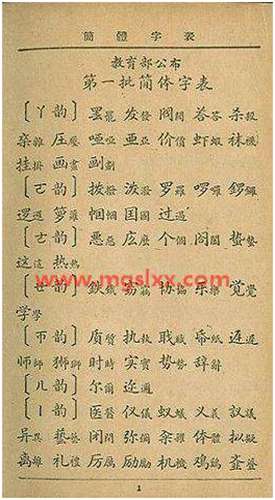 簡體字表
教育部公布
第一批简体字表
〔ㄚ韵〕 罢罷 发發 阀閥 荅答 杀殺
杂雜 压壓 哑啞 亚亞 价價 虾蝦 袜襪
挂掛 画畫 划劃
〔ㄛ韵〕 拨撥 泼潑 罗羅 啰囉 锣鑼
逻邏 箩籮 帼幗 国國 过過
〔ㄜ韵〕 恶惡 庅麼 个個 阁閣 蛰蟄
这這 热熱
www.mgslxx.com
〔ㄝ韵〕 鉄鐵 窃竊 协協 乐樂 觉覺
学學
〔ㄭ韵〕 质質 执執 职職 帋紙 迟遲
师師 狮獅 时時 实實 势勢 辞辭
〔ㄦ韵〕 尔爾 迩邇
〔ㄧ韵〕 医醫 仪儀 蚁蟻 义義 议議
异異 艺藝 闭閉 弥彌 籴糴 体體 拟擬
离離 礼禮 厉厲 励勵 机機 鸡鷄
1